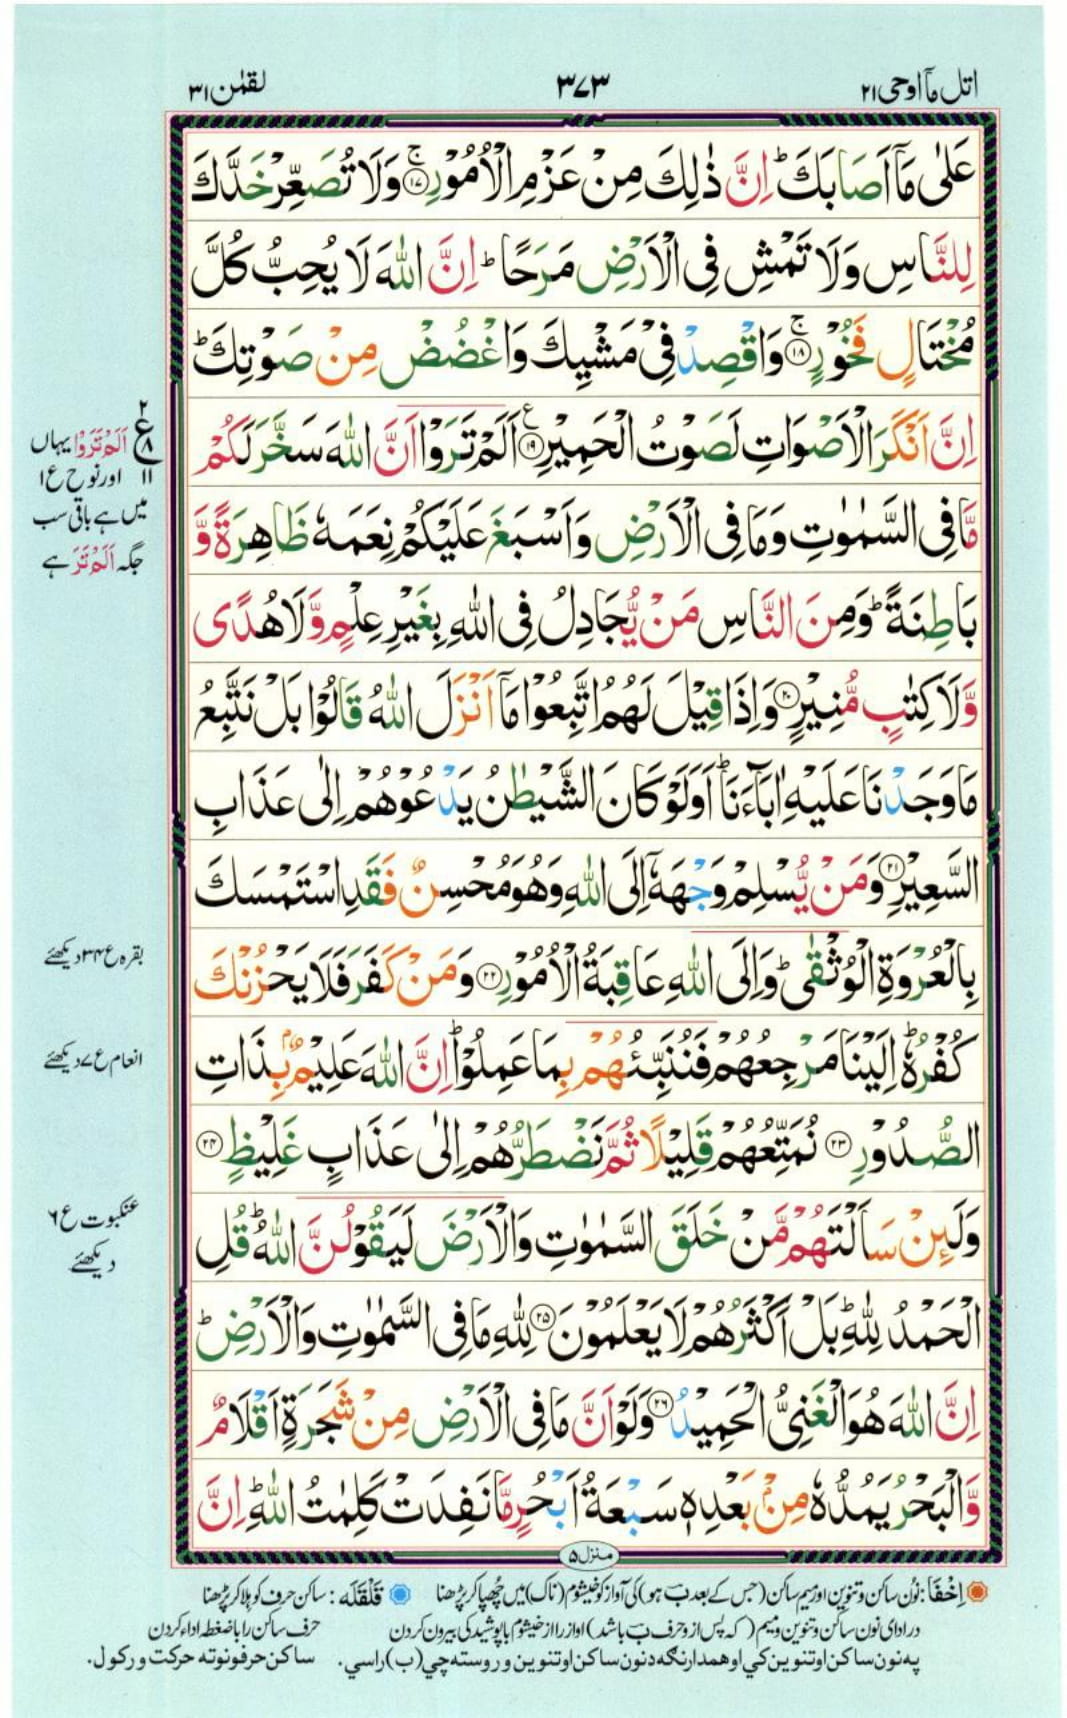 اتل مآ اوحی ۲۱
۳۷۳
لقمٰن ۳۱
عَلٰى مَاۤ اَصَابَكَ ؕ اِنَّ ذٰلِكَ مِنْ عَزْمِ الْاُمُوْرِ ۚ‏﴿۱۷﴾ وَلَا تُصَعِّرْ خَدَّكَ
لِلنَّاسِ وَلَا تَمْشِ فِى الْاَرْضِ مَرَحًا ؕ اِنَّ اللّٰهَ لَا يُحِبُّ كُلَّ
مُخْتَالٍ فَخُوْرٍ ۚ‏﴿۱۸﴾ وَاقْصِدْ فِىْ مَشْيِكَ وَاغْضُضْ مِنْ صَوْتِكَ ؕ
اِنَّ اَنْكَرَ الْاَصْوَاتِ لَصَوْتُ الْحَمِيْرِ ﴿۱۹﴾ ع اَلَمْ تَرَوْا اَنَّ اللّٰهَ سَخَّرَ لَكُمْ
مَّا فِى السَّمٰوٰتِ وَمَا فِى الْاَرْضِ وَاَسْبَغَ عَلَيْكُمْ نِعَمَهٗ ظَاهِرَةً وَّ
بَاطِنَةً ؕ وَمِنَ النَّاسِ مَنْ يُّجَادِلُ فِى اللّٰهِ بِغَيْرِ عِلْمٍ وَّلَا هُدًى
وَّلَا كِتٰبٍ مُّنِيْرٍ ﴿۲۰﴾ وَاِذَا قِيْلَ لَهُمُ اتَّبِعُوْا مَاۤ اَنْزَلَ اللّٰهُ قَالُوْا بَلْ نَتَّبِعُ
مَا وَجَدْنَا عَلَيْهِ اٰبَآءَنَا ؕ اَوَلَوْ كَانَ الشَّيْطٰنُ يَدْعُوْهُمْ اِلٰى عَذَابِ
السَّعِيْرِ ﴿۲۱﴾ وَمَنْ يُّسْلِمْ وَجْهَهٗۤ اِلَى اللّٰهِ وَهُوَ مُحْسِنٌ فَقَدِ اسْتَمْسَكَ
بِالْعُرْوَةِ الْوُثْقٰى ؕ وَاِلَى اللّٰهِ عَاقِبَةُ الْاُمُوْرِ ﴿۲۲﴾ وَمَنْ كَفَرَ فَلَا يَحْزُنْكَ
كُفْرُهٗ ؕ اِلَيْنَا مَرْجِعُهُمْ فَنُنَبِّئُهُمْ بِمَا عَمِلُوْا ؕ اِنَّ اللّٰهَ عَلِيْمٌۢ بِذَاتِ
الصُّدُوْرِ ﴿۲۳﴾ نُمَتِّعُهُمْ قَلِيْلًا ثُمَّ نَضْطَرُّهُمْ اِلٰى عَذَابٍ غَلِيْظٍ ﴿۲۴﴾
وَلَئِنْ سَاَلْتَهُمْ مَّنْ خَلَقَ السَّمٰوٰتِ وَالْاَرْضَ لَيَقُوْلُنَّ اللّٰهُ ؕ قُلِ
الْحَمْدُ لِلّٰهِ ؕ بَلْ اَكْثَرُهُمْ لَا يَعْلَمُوْنَ ﴿۲۵﴾ لِلّٰهِ مَا فِى السَّمٰوٰتِ وَالْاَرْضِ ؕ
اِنَّ اللّٰهَ هُوَ الْغَنِىُّ الْحَمِيْدُ ﴿۲۶﴾ وَلَوْ اَنَّ مَا فِى الْاَرْضِ مِنْ شَجَرَةٍ اَقْلَامٌ
وَّالْبَحْرُ يَمُدُّهٗ مِنْۢ بَعْدِهٖ سَبْعَةُ اَبْحُرٍ مَّا نَفِدَتْ كَلِمٰتُ اللّٰهِ ؕ اِنَّ
۲
ع
۸
اَلَمْ تَرَوْا یہاں
۱۱
اور نوح ع ۱
میں ہے باقی سب
جگہ اَلَمْ تَرَ ہے
بقرہ ع ۳۴ دیکھئے
انعام ع ۷ دیکھئے
عنکبوت ع ۶
دیکھئے
منزل ۵
اِخْفَا: نُون ساکن و تنوین اور میم ساکن (جس کے بعد ب ہو) کی آواز کو خیشوم (ناک) میں چُھپا کر پڑھنا قَلْقَلَه : ساکن حرف کو ہلا کر پڑھنا
در ادای نون ساکن و تنوین و میم ( که پس از و حرف ب باشد ) اواز را از خیشوم با پوشیدگی بیرون کردن حرف ساکن را باضغطه اداء کردن
په نون ساکن او تنوین کي او همدارنګه د نون ساکن او تنوین وروسته چي (ب) راسي. ساکن حرفونو ته حرکت ورکول.